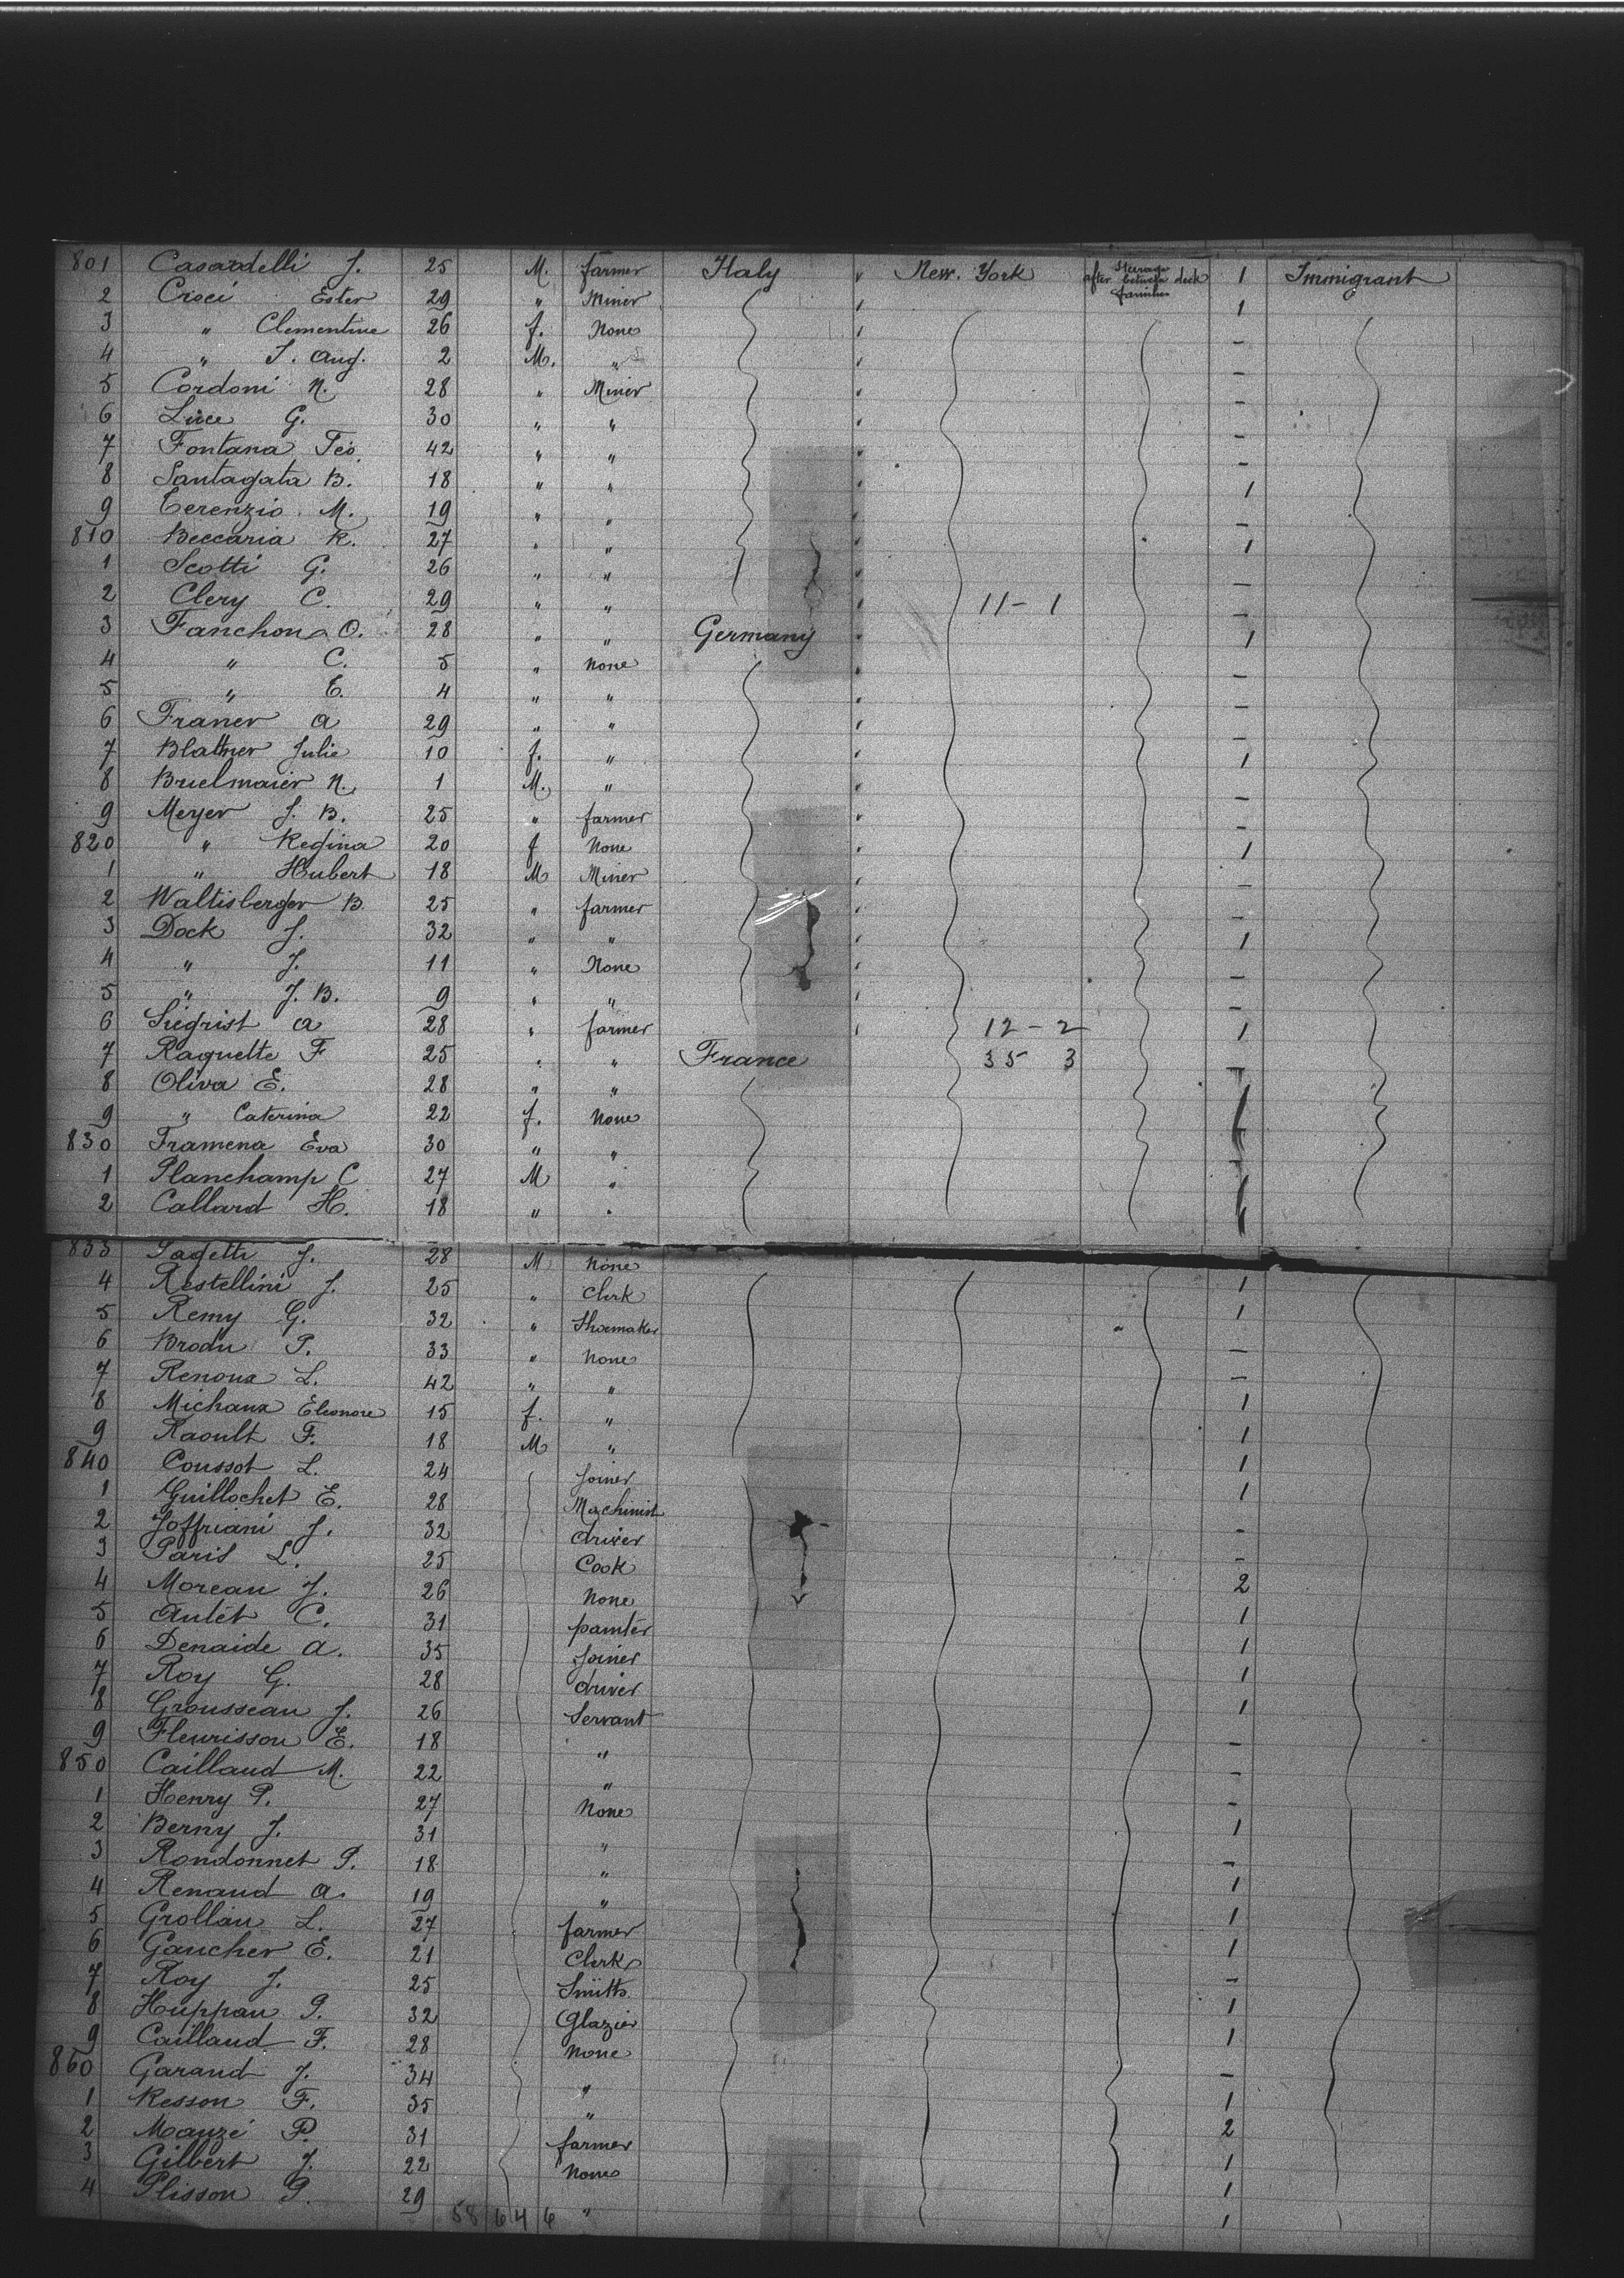 801 Casadelli J. 25 M. farmer Italy " New. York Steerage after between deck families 1 Immigrant
2 Croci Ester 29 " Miner " 1
3 " Clementine 26 f. None " -
4 " J. Aug. 2 M. " " -
5 Cordoni N. 28 " Miner " -
6 Luce G. 30 " " " -
7 Fontana Teo. 42 " " " -
8 Santagata B. 18 " " " 1
9 Terenzio M. 19 " " " -
810 Beccaria R. 27 " " " 1
1 Scotti G. 26 " " " -
2 Clery C. 29 " " " 11 - 1 -
3 Fanchon O. 28 " " Germany " 1
4 " C. 5 " None " -
5 " E. 4 " " " -
6 Franer A 29 " " " -
7 Blattner Julie 10 f. " " 1
8 Bruelmaier N. 1 M. " " -
9 Meyer J. B. 25 " farmer " -
820 " Regina 20 f None " 1
1 " Hubert 18 M Miner " -
2 Waltisberger B 25 " farmer " -
3 Dock J. 32 " " " 1
4 " J. 11 " None " -
5 " J. B. 9 " " " -
6 Siegrist A 28 " farmer " 12 - 2 1
7 Raquette F 25 " " France 35 3
8 Oliva E. 28 " "
9 " Caterina 22 f. None
830 Framena Eva 30 " "
1 Planchamp C 27 M "
2 Callard H. 18 " "
833 Sagetti J. 28 M None
4 Restellini J. 25 " Clerk 1
5 Remy G. 32 " Shoemaker 1
6 Brodu P. 33 " None -
7 Renoux L. 42 " " -
8 Michaux Eleonore 15 f. " 1
9 Raoult F. 18 M " 1
840 Coussot L. 24 Joiner 1
1 Guillochet E. 28 Machinist 1
2 Joffriani J. 32 driver -
3 Paris L. 25 Cook -
4 Moreau J. 26 None 2
5 Autét C. 31 painter 1
6 Denaide A. 35 Joiner 1
7 Roy G. 28 driver 1
8 Grousseau J. 26 Servant 1
9 Fleurisson E. 18 " -
850 Caillaud M. 22 " -
1 Henry P. 27 None -
2 Berny J. 31 " 1
3 Rondonnet P. 18 " -
4 Renaud A. 19 " 1
5 Grollau L. 27 farmer 1
6 Gaucher E. 21 Clerk 1
7 Roy J. 25 Smith -
8 Huppau P. 32 Glazier 1
9 Caillaud F. 28 None 1
860 Garaud J. 34 " -
1 Resson F. 35 " 1
2 Mauzé P. 31 farmer 2
3 Gilbert J. 22 None 1
4 Plisson P. 29 " 1
58 6 4 6 1